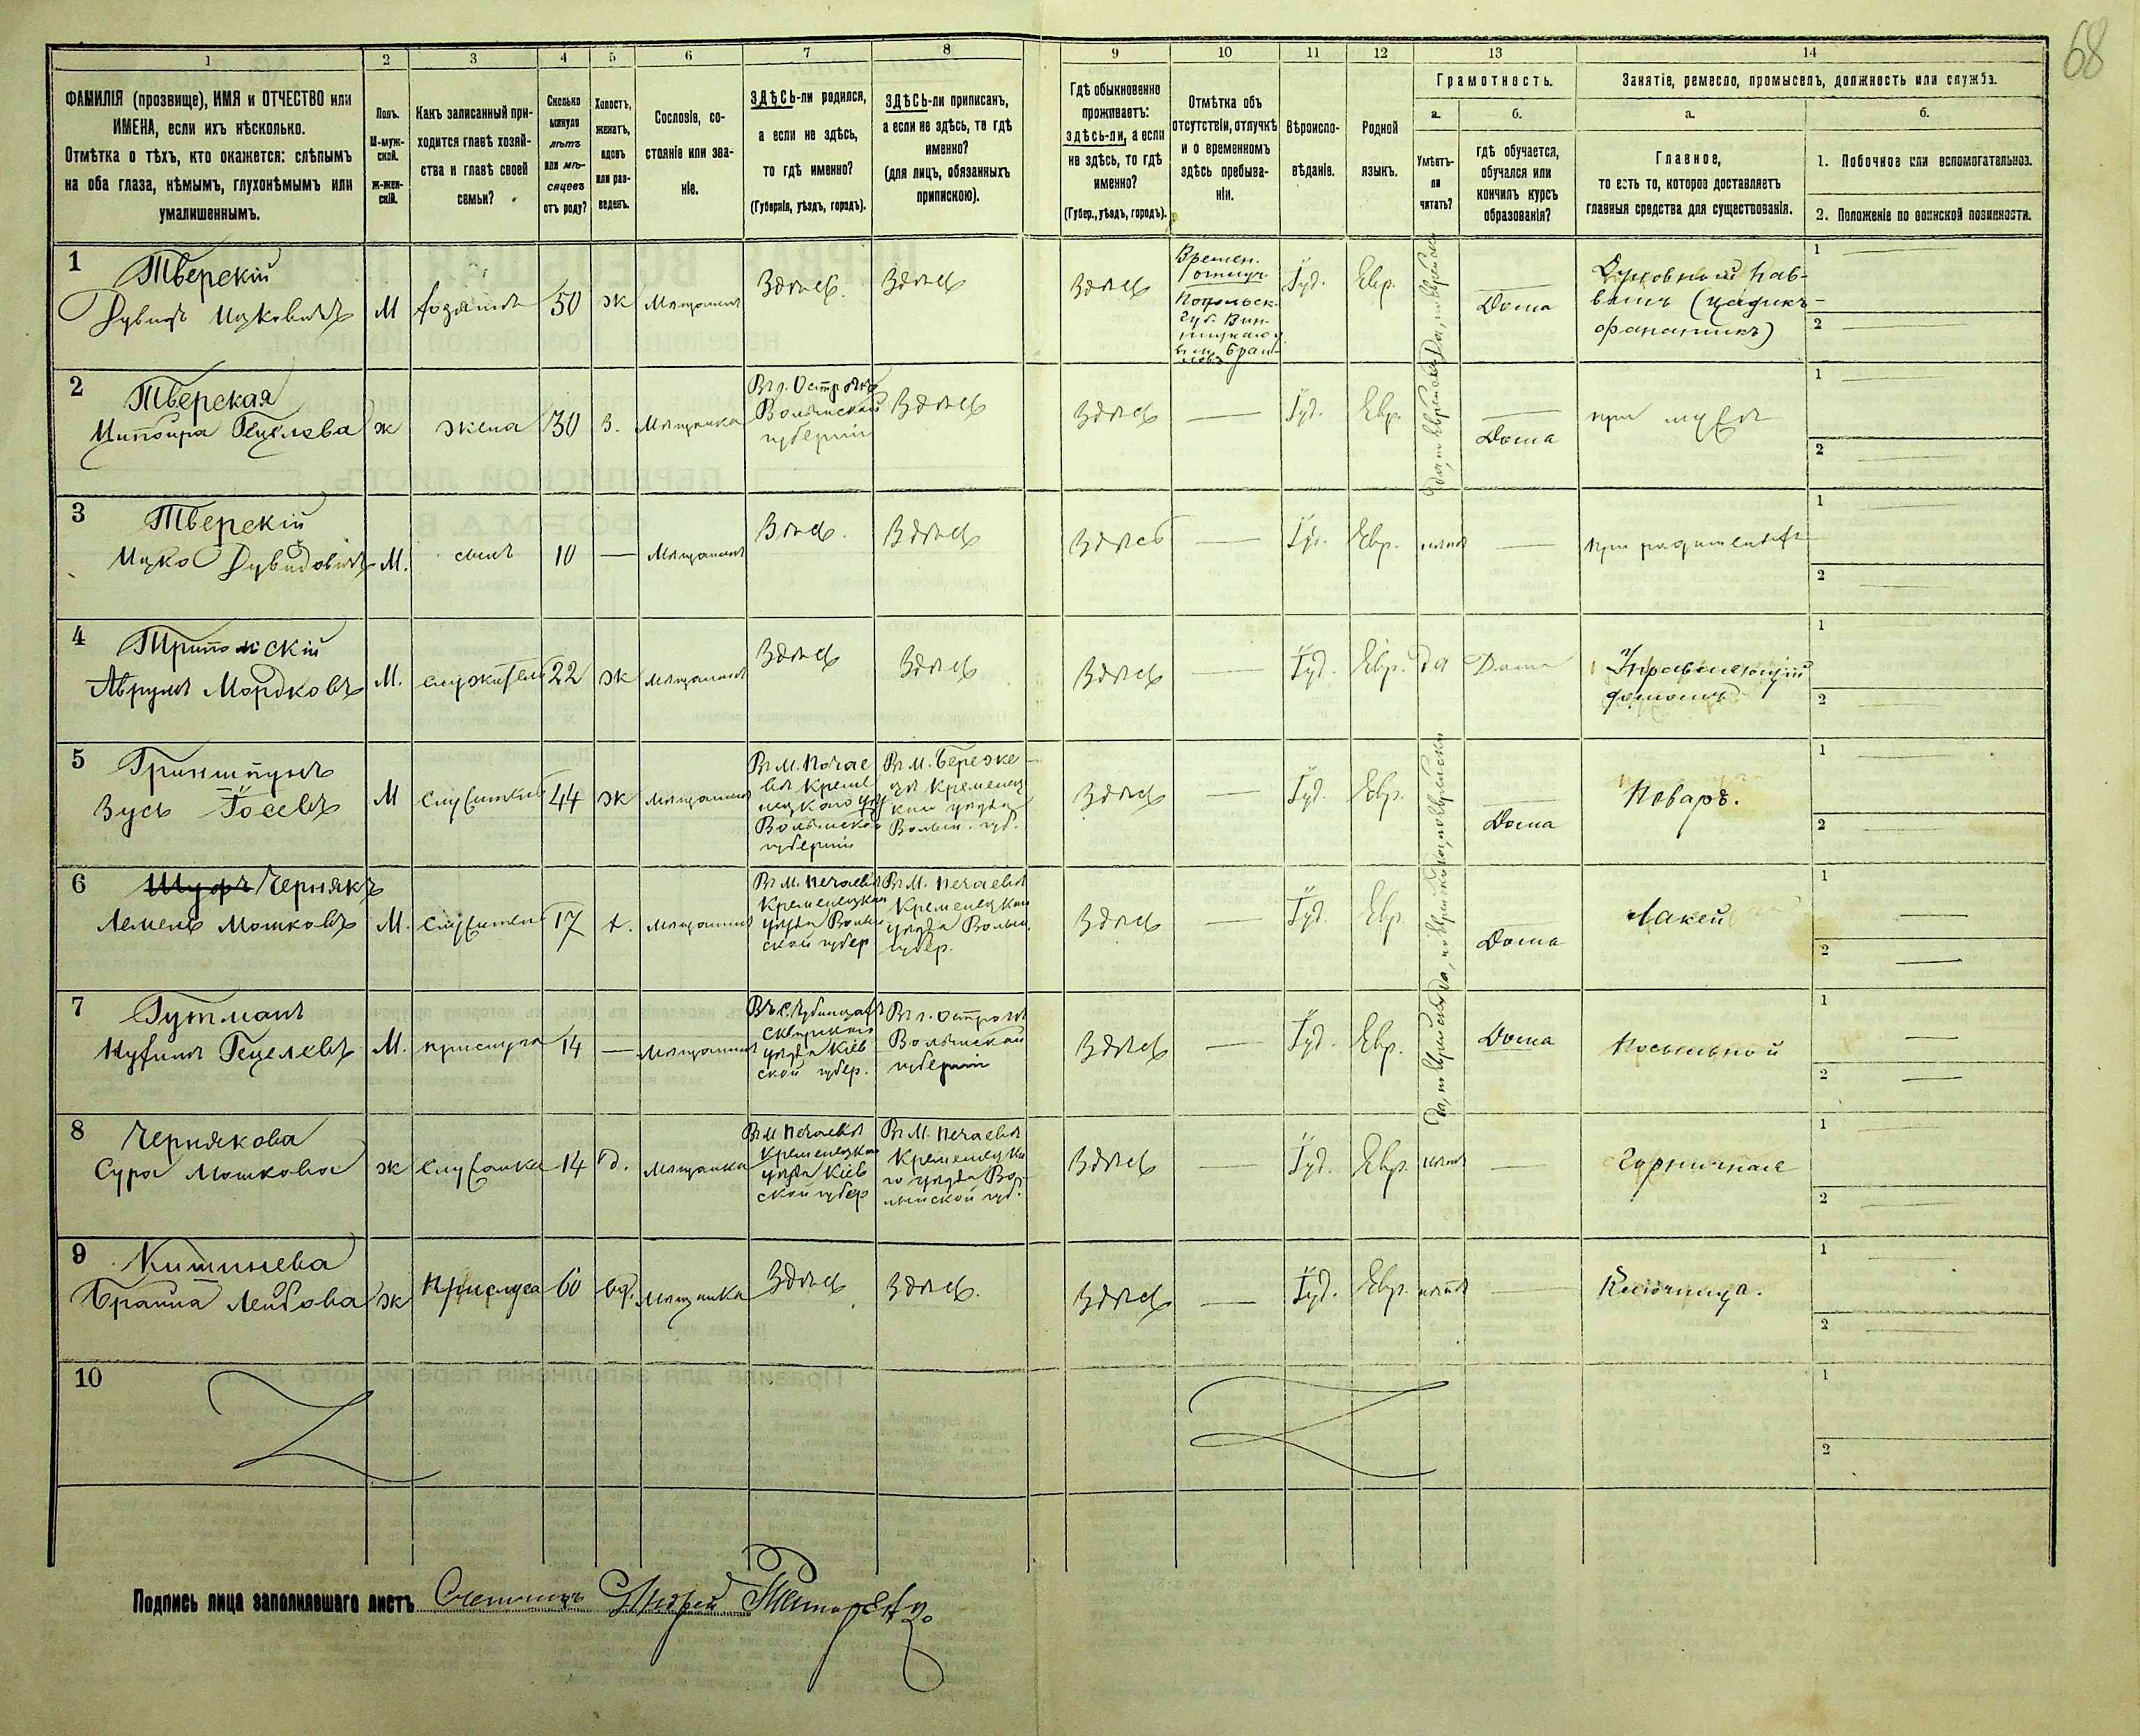 68
1 2 3 4 5 6 7 8 9 10 11 12 13 14
ФАМИЛІЯ (прозвище), ИМЯ и ОТЧЕСТВО или
ИМЕНА, если ихъ нѣсколько.
Отмѣтка о тѣхъ, кто окажется: слѣпымъ
на оба глаза, нѣмымъ, глухонѣмымъ или
умалишеннымъ.
Полъ.
М-муж-
ской.
Ж-жен-
скій.
Какъ записанный при-
ходится главѣ хозяй-
ства и главѣ своей
семьи?
Сколько
минуло
лѣтъ
или мѣ-
сяцевъ
отъ роду?
Холостъ,
женатъ,
вдовъ
или раз-
веденъ.
Сословіе, со-
стояніе или зва-
ніе.
ЗДѢСЬ-ли родился,
а если не здѣсь,
то гдѣ именно?
(Губернія, уѣздъ, городъ).
ЗДѢСЬ-ли приписанъ,
а если не здѣсь, то гдѣ
именно?
(для лицъ, обязанныхъ
припискою).
Гдѣ обыкновенно
проживаетъ:
здѣсь-ли, а если
не здѣсь, то гдѣ
именно?
(Губер., уѣздъ, городъ).
Отмѣтка объ
отсутствіи, отлучкѣ
и о временномъ
здѣсь пребыва-
ніи.
Вѣроиспо-
вѣданіе.
Родной
языкъ.
Грамотность.
а.
Умѣетъ-
ли
читать?
б.
гдѣ обучается,
обучался или
кончилъ курсъ
образованія?
Занятіе, ремесло, промыселъ, должность или служба.
а.
Главное,
то есть то, которое доставляетъ
главныя средства для существованія.
б.
1. Побочное или вспомогательное.
2. Положеніе по воинской повинности.
1
Тверскій
Дувидъ Ицковичъ
М
хозяинъ
50
ж
мѣщанинъ
Здѣсь.
Здѣсь
Здѣсь
Времен.
отлуч.
Подольск.
губ. Вин-
Іуд.
Евр.
Да, по еврейски
Дома
Духовный нав-
(цадикъ-
фанатикъ)
1
2
2
Тверская
Ципойра Гецелева
ж
жена
30
З.
мѣщанка
Въ г. Острогѣ
Волынской
губерніи
Здѣсь
Здѣсь
Іуд.
Евр.
Да, по еврейски
Дома
при мужѣ
1
2
3
Тверскій
Ицко Дувидовичъ
М.
сынъ
10
мѣщанинъ
Здѣсь.
Здѣсь
Здѣсь
Іуд.
Евр.
нѣтъ
при родителяхъ
1
2
4
Трипольскій
Аврумъ Мордковъ
М.
служитель
22
ж
мѣщанинъ
Здѣсь
Здѣсь
Здѣсь
Іуд.
Евр.
да
Дома
Управляющій
домомъ
1
2
5
Гриншпунъ
Зусь Іосевъ
М
служитель
44
ж
мѣщанинъ
Въ м. Почае
вѣ Креме
нецкаго уѣз
Волынской
губерніи
Въ м. Береже
цѣ Кременец
каго уѣзда
Волын. губ.
Здѣсь
Іуд.
Евр.
Да, по еврейски
Дома
Поваръ.
1
2
6
Чернякъ
Лемель Мошковъ
М.
служитель
17
х.
мѣщанинъ
Въ м. Почаевѣ
Кременецкаго
уѣзда Волын
ской губер
Въ м. Почаевѣ
Кременецкаго
уѣзда Волын.
губер.
Здѣсь
Іуд.
Евр.
Да, по еврейски
Дома
Лакей
1
2
7
Гутманъ
Нухимъ Гецелевъ
М.
прислуга
14
мѣщанинъ
Сквирскаго
уѣзда Кіев
ской губер.
Въ г. Острогѣ
Волынской
губерніи
Здѣсь
Іуд.
Евр.
Да, по еврейски
Дома
Посыльной
1
2
8
Чернякова
Сура Мошкова
ж
служанка
14
д.
мѣщанка
Въ м Почаевѣ
Кременецкаго
уѣзда Кіев
ской губер
Въ м. Почаевѣ
Кременецка
го уѣзда Во-
лынской губ.
Здѣсь
Іуд.
Евр.
нѣтъ
Горничная
1
2
9
Кишинева
Брайна Лейбова
ж
Прислуга
60
вд.
мѣщанка
Здѣсь
Здѣсь.
Здѣсь
Іуд.
Евр.
нѣтъ
Ключница.
1
2
10
1
2
Подпись лица заполнявшаго листъ Счетчикъ Андрей